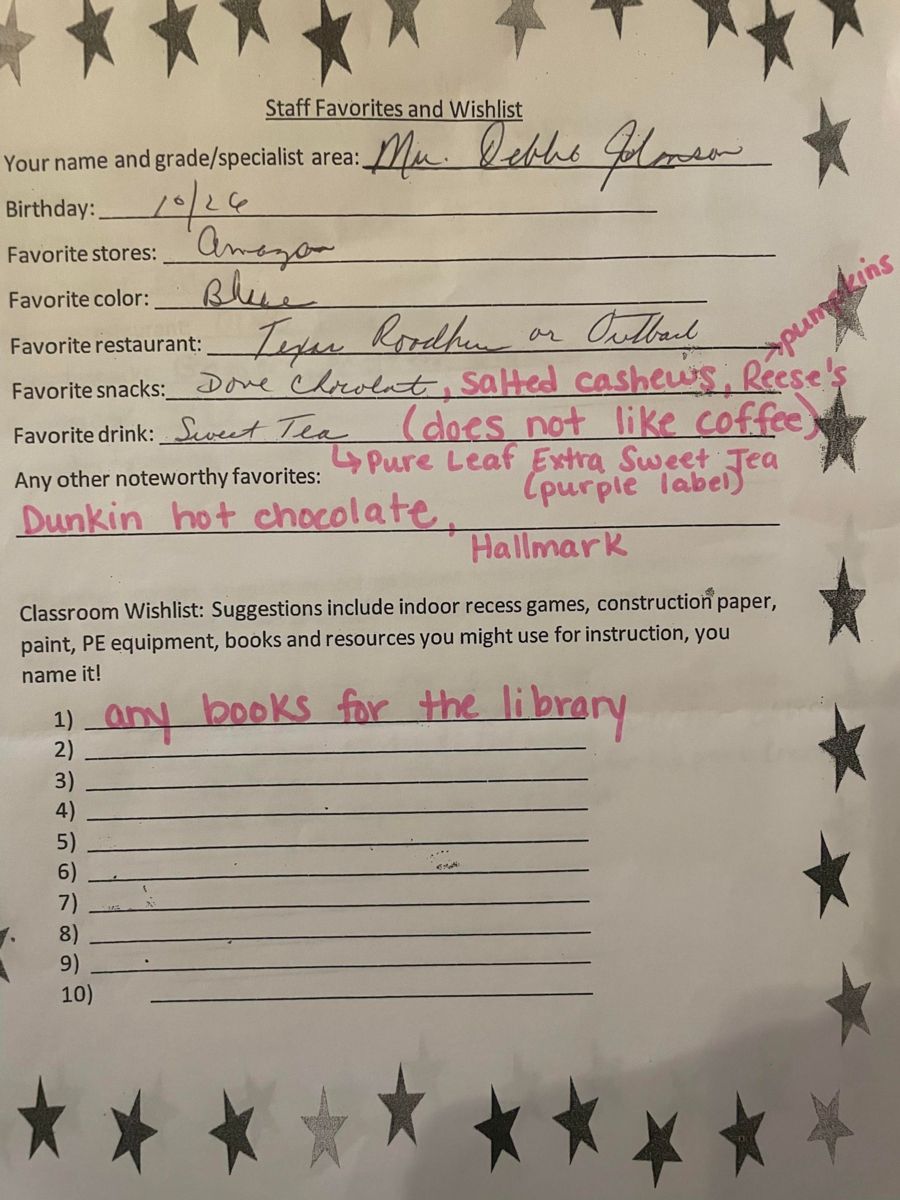 Staff Favorites and Wishlist
Your name and grade/specialist area: Debbie Johnson
Birthday: 10/26
Favorite stores: Amazon
Favorite color: Blue
pumpkins
Favorite restaurant: Texas Roadhouse or Outback
Favorite snacks: Dove Chocolate, salted cashews, Reese's
Favorite drink: Sweet Tea (does not like coffee)
↳ Pure Leaf Extra Sweet Tea
Any other noteworthy favorites: (purple label)
Dunkin hot chocolate,
Hallmark
Classroom Wishlist: Suggestions include indoor recess games, construction paper,
paint, PE equipment, books and resources you might use for instruction, you
name it!
1) any books for the library
2)
3)
4)
5)
6)
7)
8)
9)
10)